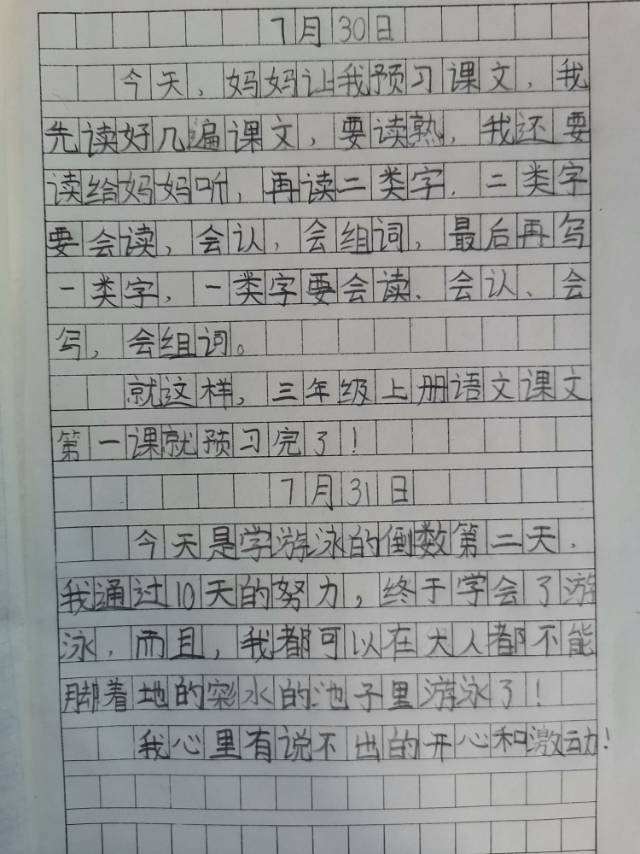 7月30日
今天，妈妈让我预习课文，我
先读好几遍课文，要读熟，我还要
读给妈妈听，再读二类字．二类字
要会读，会认，会组词，最后再写
一类字，一类字要会读、会认、会
写，会组词。
就这样，三年级上册语文课文
第一课就预习完了！
7月31日
今天是学游泳的倒数第二天．
我通过10天的努力，终于学会了游
泳．而且，我都可以在大人都不能
脚着地的深水的池子里游泳了！
我心里有说不出的开心和激动！